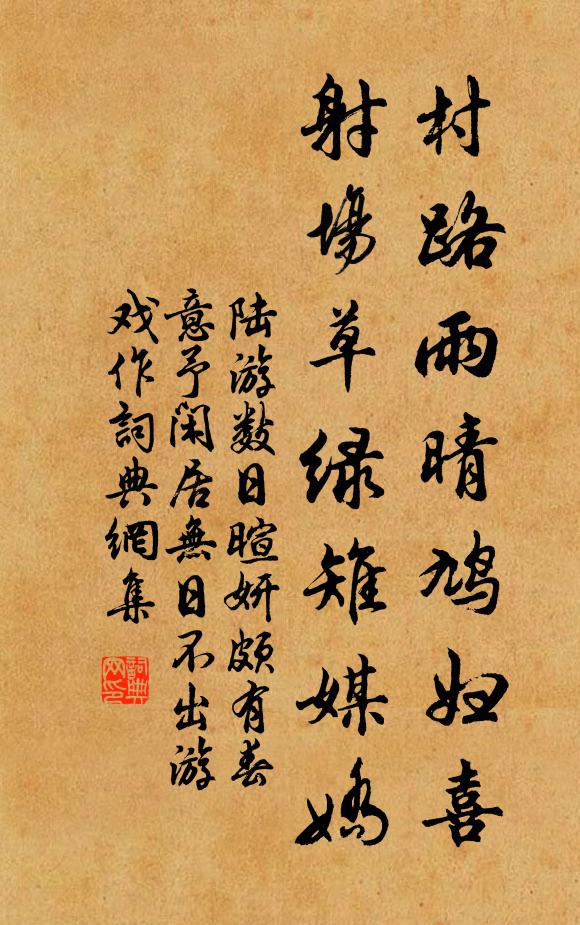 村路雨晴鸠妇喜
射場草绿雉媒嬌
陆游数日暄妍颇有春
意予闲居無日不出游
戏作詞典網集
詞典网印